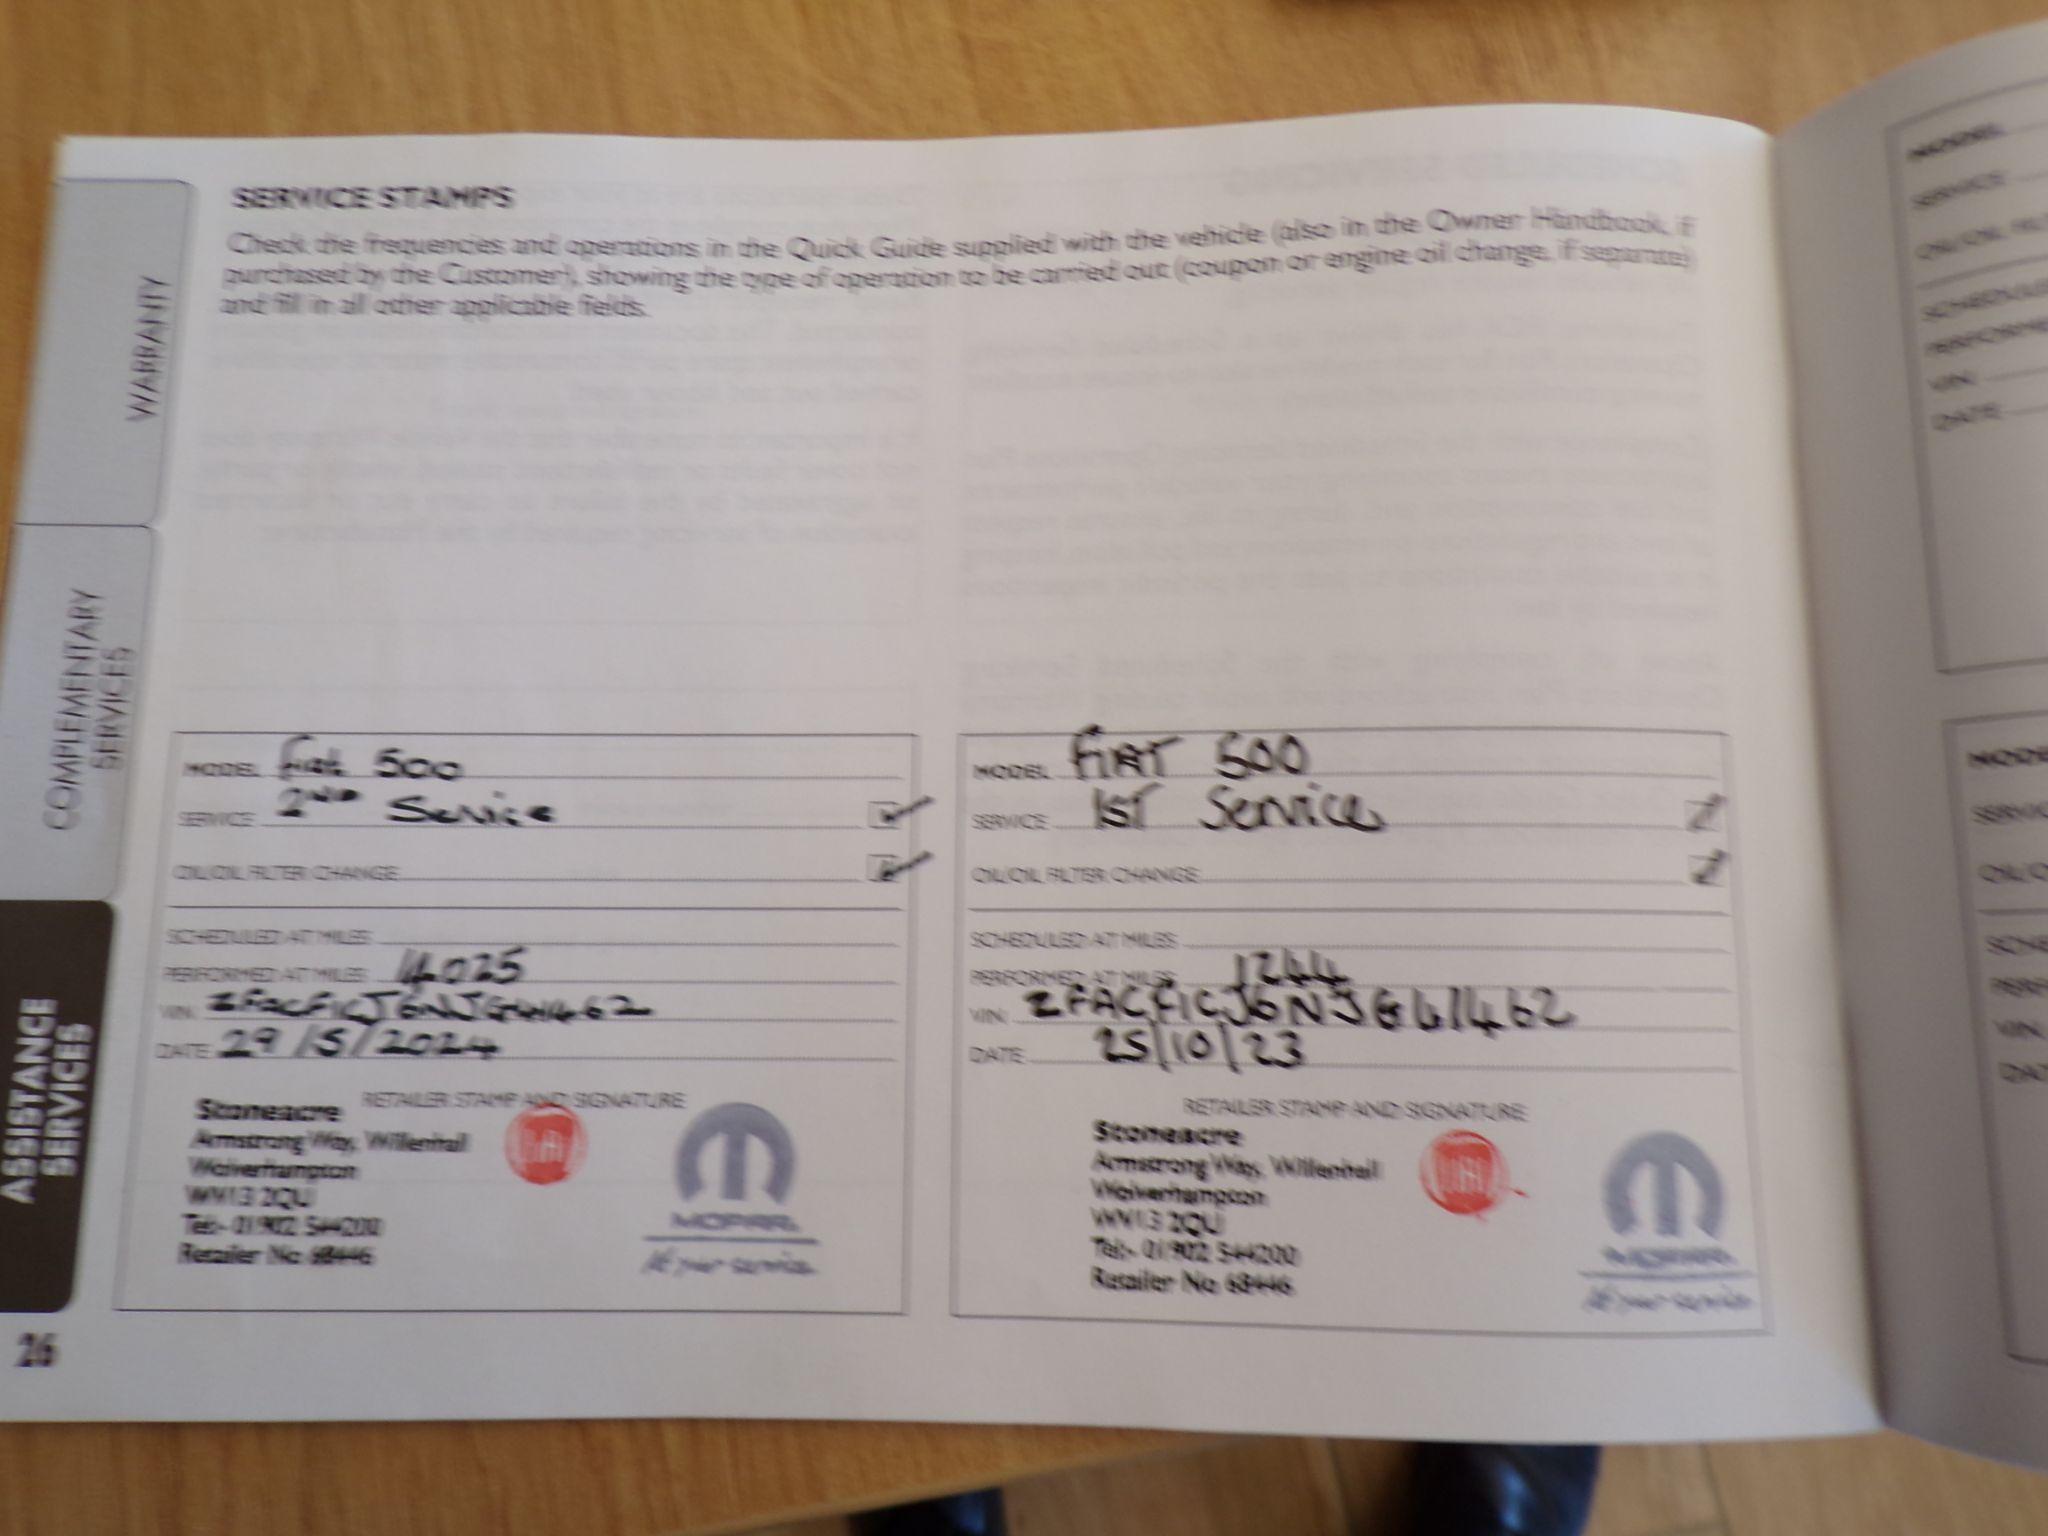 SERVICE STAMPS
Check the frequencies and operations in the Quick Guide supplied with the vehicle (also in the Owner Handbook, if
purchased by the Customer), showing the type of operation to be carried out (coupon or engine oil change, if separate)
and fill in all other applicable fields.
WARRANTY
COMPLEMENTARY
SERVICES
ASSISTANCE
SERVICES
MODEL Fiat 500
SERVICE 2ND Service
OIL/OIL FILTER CHANGE
SCHEDULED AT MILES
PERFORMED AT MILES 14025
VIN: ZFACF1CJ6NJG41462
DATE 29/5/2024
RETAILER STAMP AND SIGNATURE
Stoneacre
Armstrong Way, Willenhall
Wolverhampton
WV13 2QU
Tel:- 01902 544200
Retailer No 68446
FIAT
MOPAR
At your service
MODEL FIAT 500
SERVICE 1ST Service
OIL/OIL FILTER CHANGE
SCHEDULED AT MILES
PERFORMED AT MILES 1244
VIN: ZFACF1CJ6NJG41462
DATE 25/10/23
RETAILER STAMP AND SIGNATURE
Stoneacre
Armstrong Way, Willenhall
Wolverhampton
WV13 2QU
Tel:- 01902 544200
Retailer No 68446
FIAT
MOPAR
At your service
26
MODEL
SERVICE
SCHEDULED
VIN:
DATE